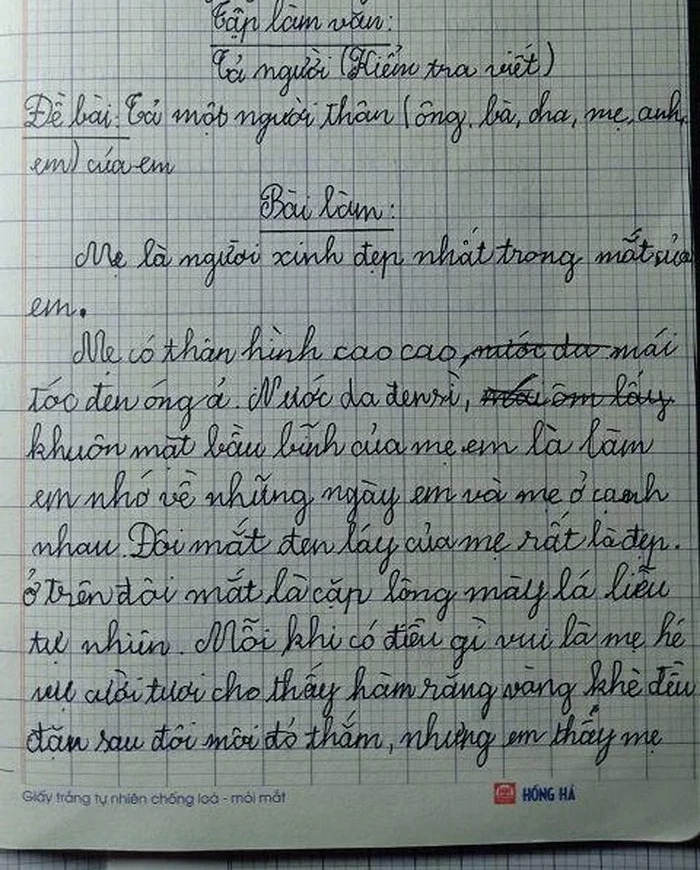 Tập làm văn:
Tả người (Kiểm tra viết)
Đề bài: Tả một người thân (ông, bà, cha, mẹ, anh,
em) của em
Bài làm:
Mẹ là người xinh đẹp nhất trong mắt của
em.
Mẹ có thân hình cao cao, nước da mái
tóc đen óng ả. Nước da đen sì, mái ôm lấy
khuôn mặt bầu bĩnh của mẹ em là làm
em nhớ về những ngày em và mẹ ở cạnh
nhau. Đôi mắt đen láy của mẹ rất là đẹp.
ở trên đôi mắt là cặp lông mày lá liễu
tự nhiên. Mỗi khi có điều gì vui là mẹ hé
nụ cười tươi cho thấy hàm răng vàng khè đều
đặn sau đôi môi đỏ thắm, nhưng em thấy mẹ
Giấy trắng tự nhiên chống loá - mỏi mắt
HỒNG HÀ